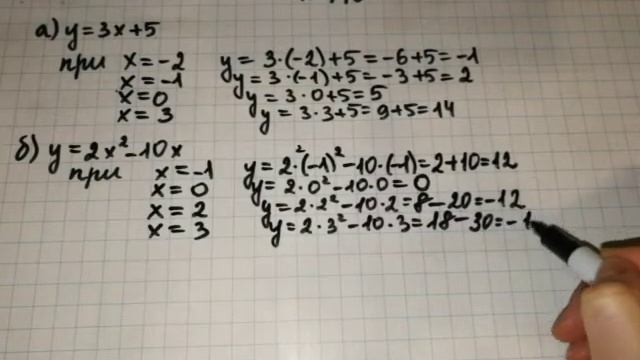 а) y=3x+5
при x=-2 y=3·(-2)+5=-6+5=-1
x=-1 y=3·(-1)+5=-3+5=2
x=0 y=3·0+5=5
x=3 y=3·3+5=9+5=14
б) y=2x²-10x
при x=-1 y=2²·(-1)²-10·(-1)=2+10=12
x=0 y=2·0²-10·0=0
x=2 y=2·2²-10·2=8-20=-12
x=3 y=2·3²-10·3=18-30=-1